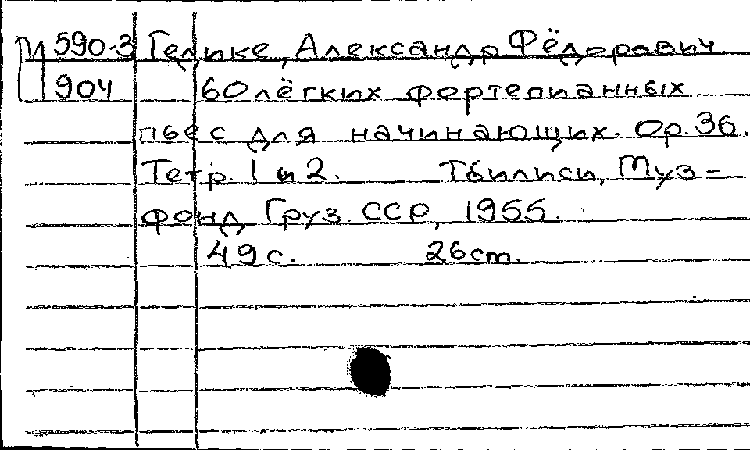 М 590-3 Гедике, Александр Фёдорович
904 60 лёгких фортепианных
пьес для начинающих. Ор. 36.
Тетр. 1 и 2. Тбилиси, Муз-
фонд Груз. ССР, 1955.
49 с. 26 cm.